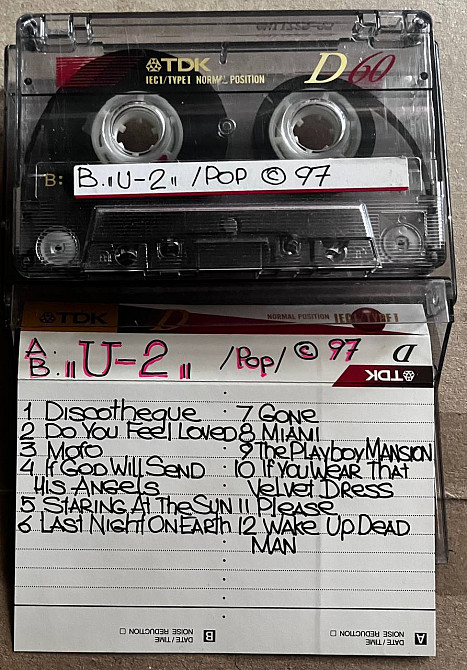 TDK
D60
IECI/TYPE I NORMAL POSITION
B: B. "U-2" /POP © 97
TDK D NORMAL POSITION IECI/TYPE I
A: B. "U-2" /POP/ © 97 D
TDK
1 Discotheque
2 Do You Feel Loved
3 Mofo
4 If God Will Send
His Angels
5 Staring At The Sun
6 Last Night On Earth
7 Gone
8 Miami
9 The Playboy Mansion
10 If You Wear That
Velvet Dress
11 Please
12 Wake Up Dead
Man
DATE/TIME
NOISE REDUCTION
B
DATE/TIME
NOISE REDUCTION
A